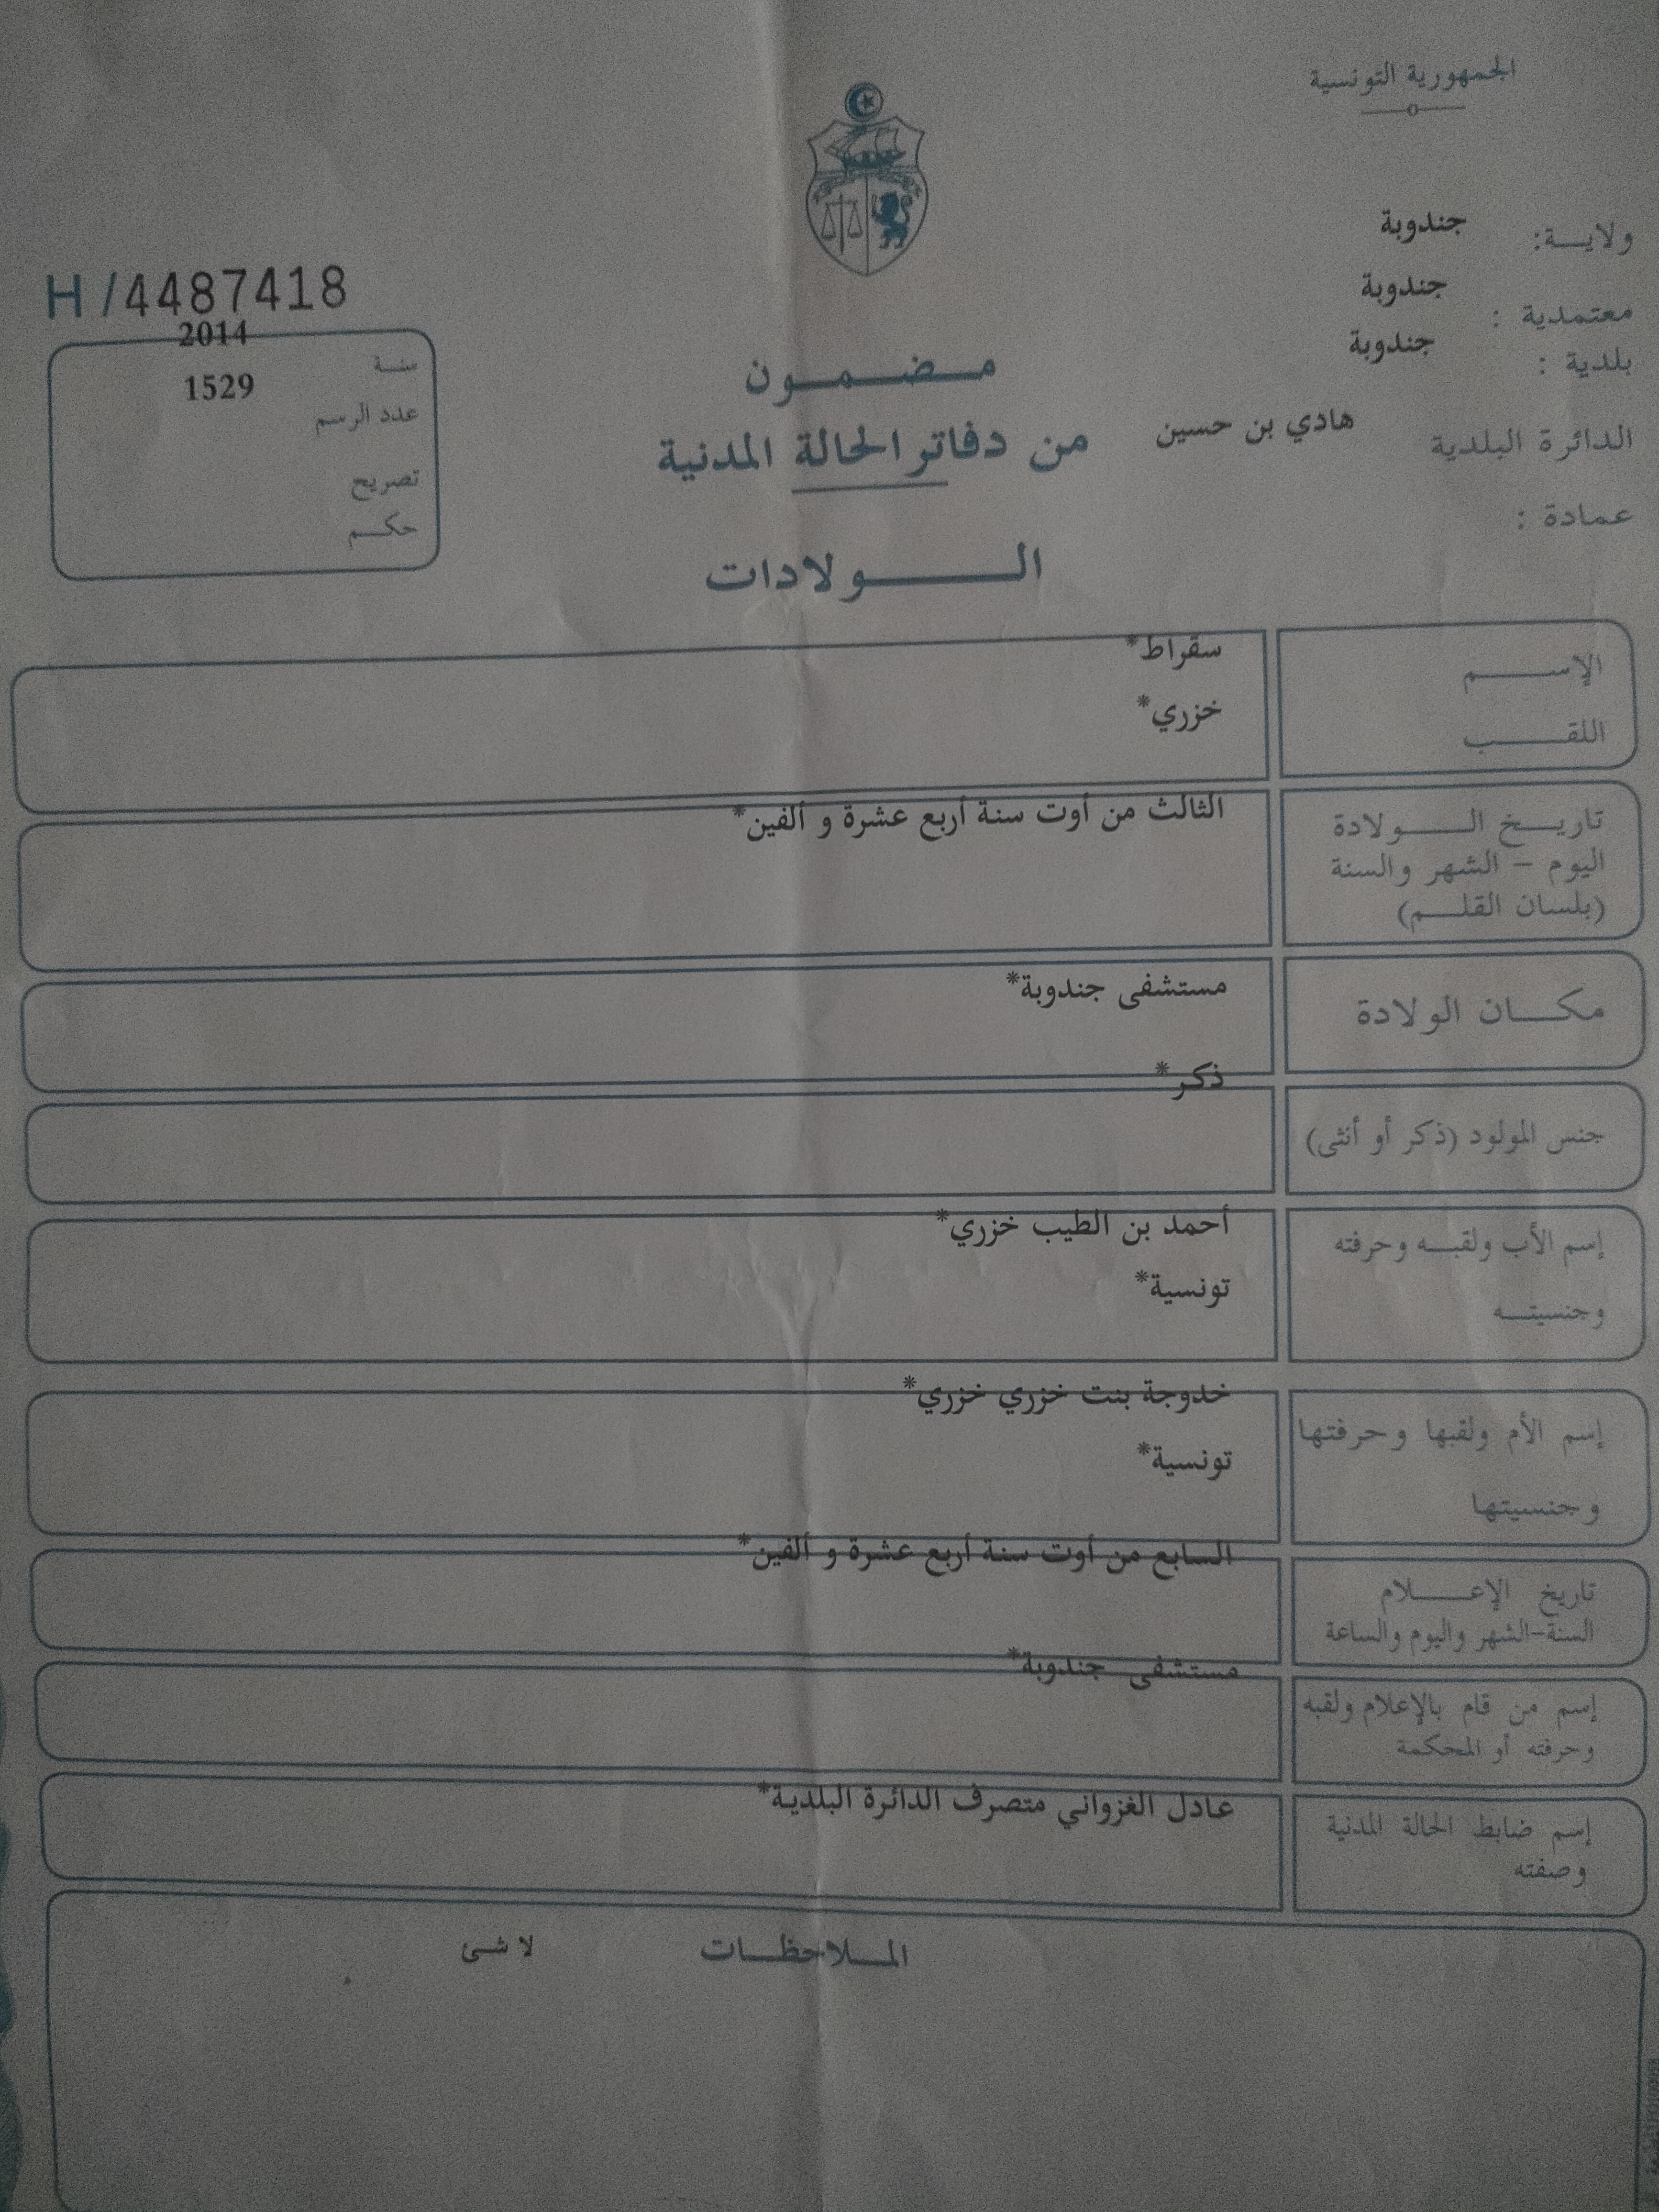 الجمهورية التونسية
ولايـــة: جندوبة
معتمدية : جندوبة
بلدية : جندوبة
الدائرة البلدية هادي بن حسين
عمادة :
مـــضـــمـــون
من دفاتر الحالة المدنية
الـــــولادات
H /4487418
سنـة 2014
عدد الرسم 1529
تصريح
حكـــم
الإســـــم سقراط*
اللقـــــب خزري*
تاريـــخ الـــــولادة الثالث من أوت سنة أربع عشرة و ألفين*
اليوم – الشهر والسنة
(بلسان القلـــم)
مكـــان الولادة مستشفى جندوبة*
جنس المولود (ذكر أو أنثى) ذكر*
إسم الأب ولقبـــه وحرفته أحمد بن الطيب خزري*
وجنسيتـــه تونسية*
إسم الأم ولقبها وحرفتها خدوجة بنت خزري خزري*
وجنسيتها تونسية*
تاريخ الإعـــــلام السابع من أوت سنة أربع عشرة و ألفين*
السنة-الشهر واليوم والساعة
إسم من قام بالإعلام ولقبه مستشفى جندوبة*
وحرفته أو المحكمة
إسم ضابط الحالة المدنية عادل الغزواني متصرف الدائرة البلدية*
وصفته
المـــلاحظـــات لا شئ